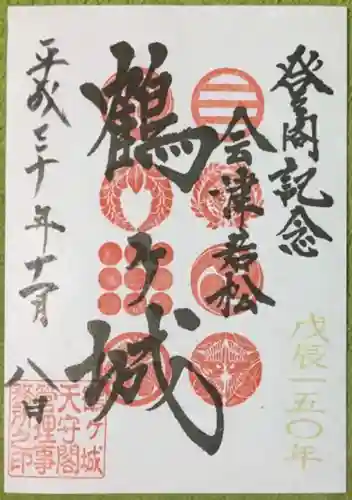 登閣記念
会津若松
鶴ヶ城
平成三十年十一月
八日
戊辰一五〇年
鶴ヶ城
天守閣
管理事
務所之印